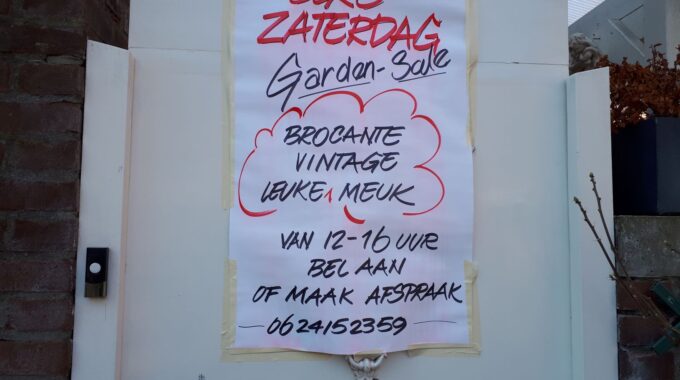 ZATERDAG
Garden-Sale
BROCANTE
VINTAGE
LEUKE, MEUK
VAN 12-16 UUR
BEL AAN
OF MAAK AFSPRAAK
- 0624152359 -